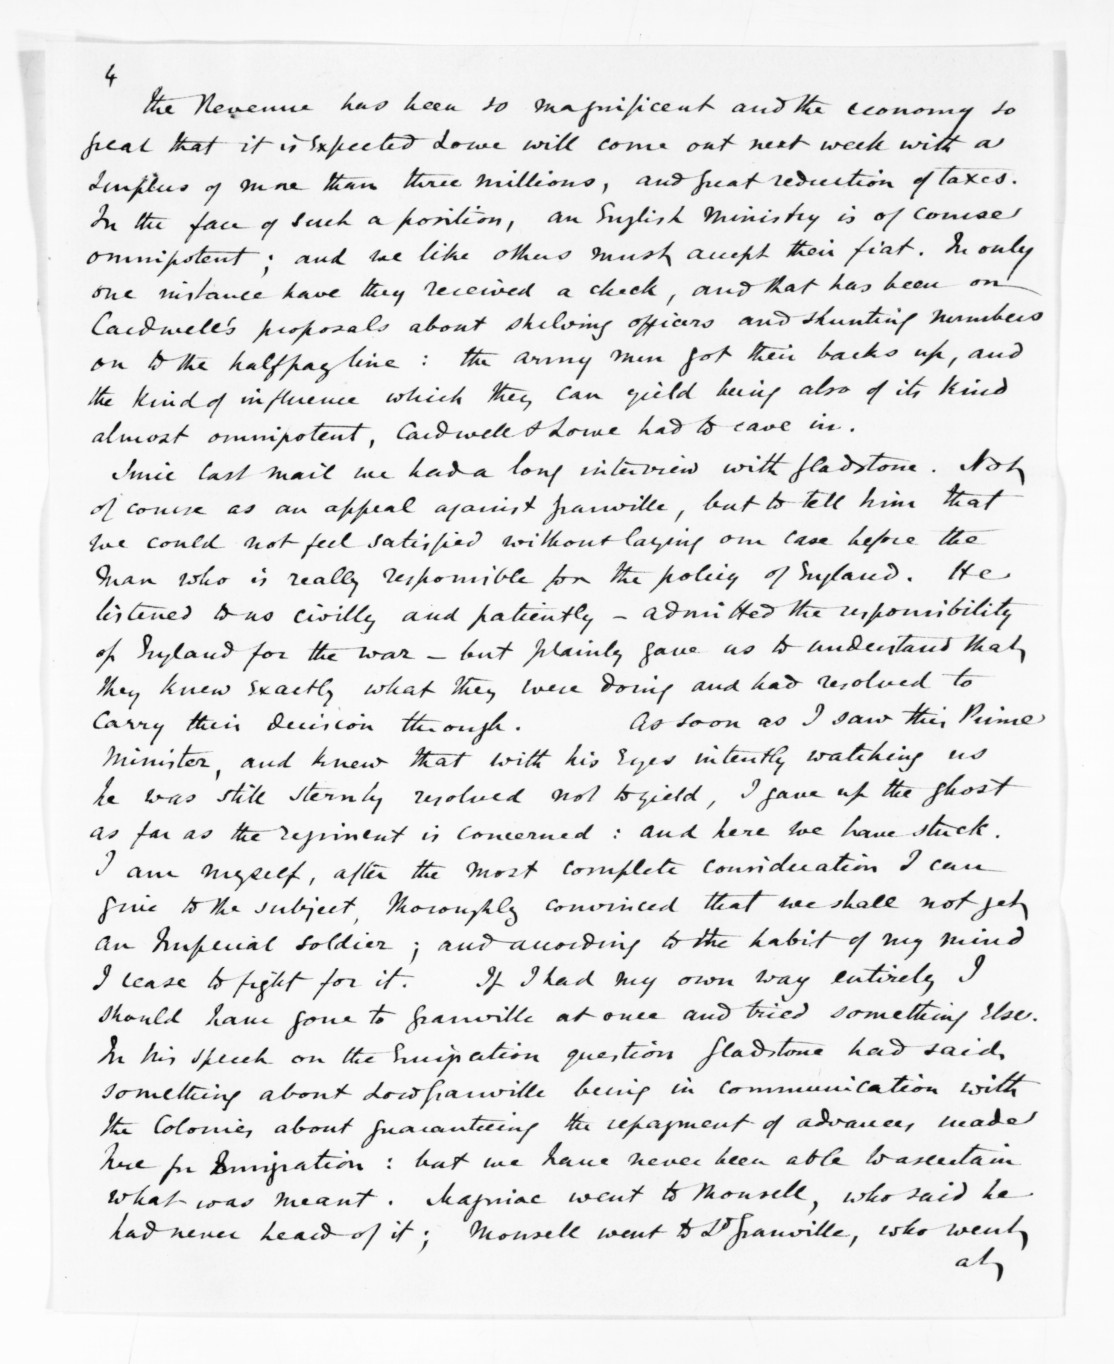 4
The Revenue has been so magnificent and the economy so
great that it is expected Lowe will come out next week with a
surplus of more than three millions, and great reduction of taxes.
In the face of such a position, an English Ministry is of course
omnipotent; and we like others must accept their fiat. In only
one instance have they received a check, and that has been on
Cardwell's proposals about shelving officers and shunting numbers
on to the halfpay line: the army men got their backs up, and
the kind of influence which they can yield being also of its kind
almost omnipotent, Cardwell & Lowe had to cave in.
Since last mail we had a long interview with Gladstone. Not
of course as an appeal against Granville, but to tell him that
we could not feel satisfied without laying our case before the
man who is really responsible for the policy of England. He
listened to us civilly and patiently – admitted the responsibility
of England for the war – but plainly gave us to understand that
they knew exactly what they were doing and had resolved to
carry their decision through. As soon as I saw this Prime
Minister, and knew that with his Eyes intently watching us
he was still sternly resolved not to yield, I gave up the ghost
as far as the regiment is concerned: and here we have stuck.
I am myself, after the most complete consideration I can
give to the subject, thoroughly convinced that we shall not get
an Imperial soldier; and according to the habit of my mind
I cease to fight for it. If I had my own way entirely I
should have gone to Granville at once and tried something else.
In his speech on the Emigration question Gladstone had said
something about Lord Granville being in communication with
the Colonies about guaranteeing the repayment of advances made
here for Emigration: but we have never been able to ascertain
what was meant. Magniac went to Monsell, who said he
had never heard of it; Monsell went to Ld Granville, who went
at